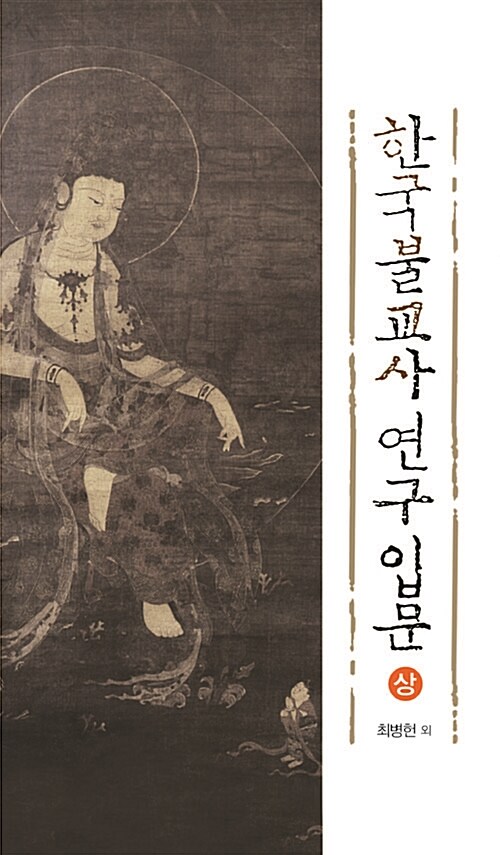 한국불교사 연구 입문
상
최병헌 외